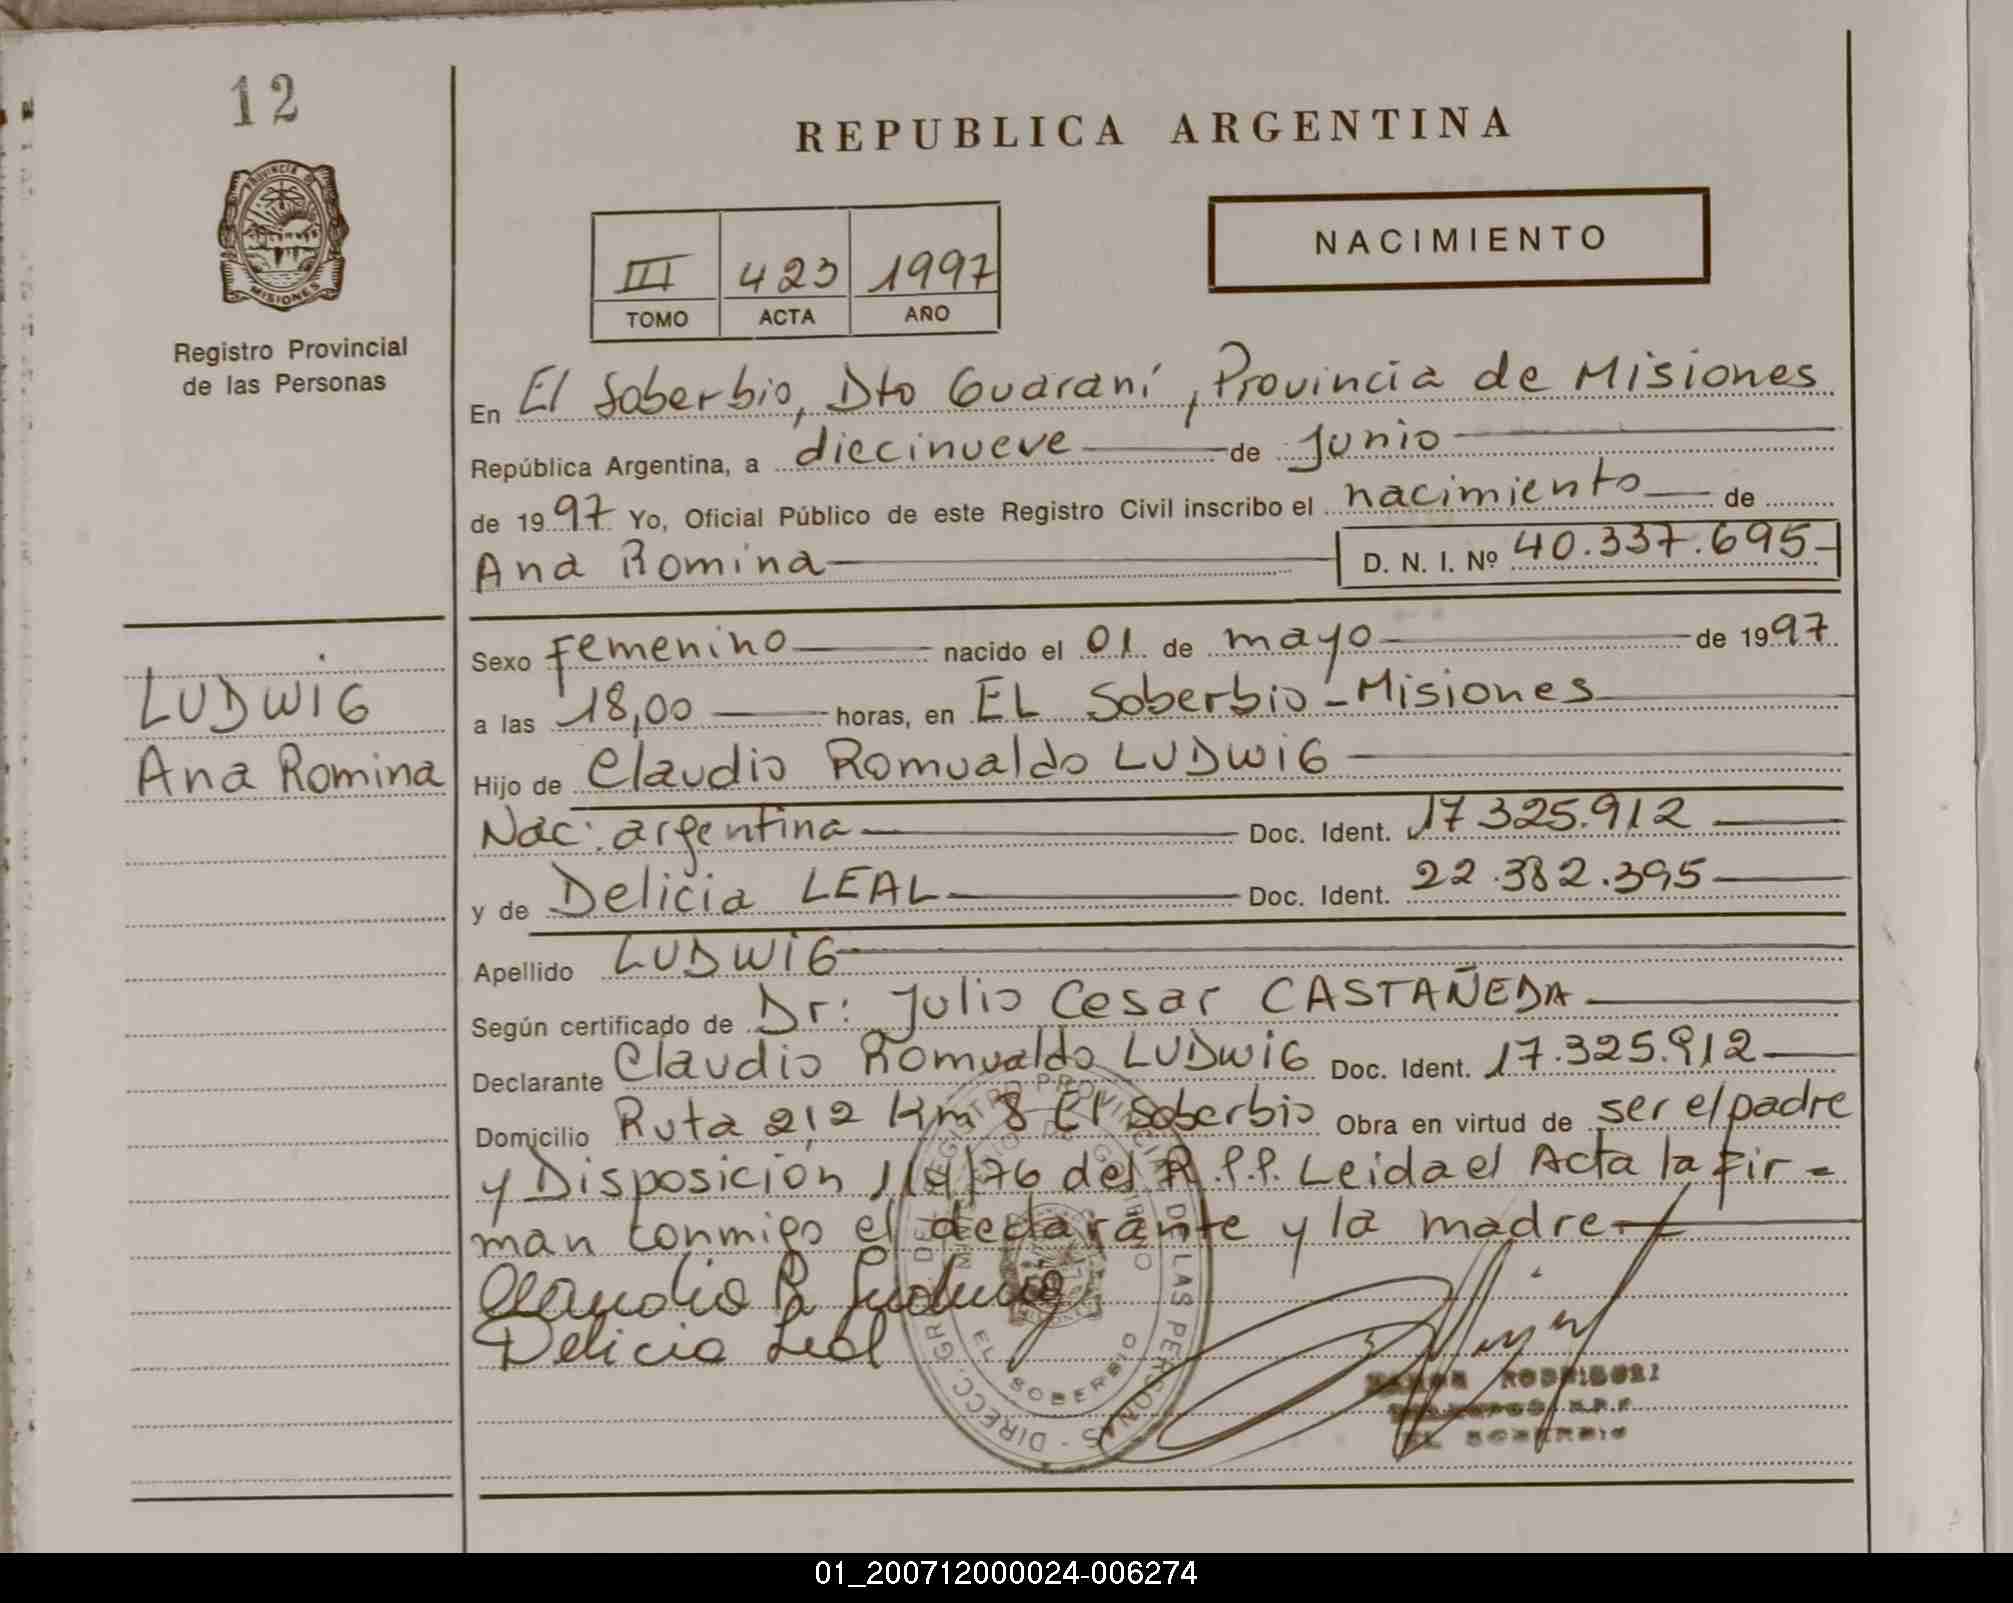 12
REPUBLICA ARGENTINA
PROVINCIA DE
MISIONES
Registro Provincial
de las Personas
NACIMIENTO
III 423 1997
TOMO ACTA AÑO
En El Soberbio, Dto Guaraní, Provincia de Misiones
República Argentina, a diecinueve de Junio
de 1997 Yo, Oficial Público de este Registro Civil inscribo el nacimiento de
Ana Romina D. N. I. Nº 40.337.695
Sexo Femenino nacido el 01 de mayo de 1997
LUDWIG
Ana Romina
a las 18,00 horas, en EL Soberbio - Misiones
Hijo de Claudio Romualdo LUDWIG
Nac: argentina Doc. Ident. 17 325.912
y de Delicia LEAL Doc. Ident. 22.382.395
Apellido LUDWIG
Según certificado de Dr: Julio Cesar CASTAÑEDA
Declarante Claudio Romualdo LUDWIG Doc. Ident. 17.325.912
Domicilio Ruta 212 Km 8 El Soberbio Obra en virtud de ser el padre
y Disposición 119/76 del R.P.P. Leida el Acta la fir=
man conmigo el declarante y la madre
Claudio R Ludwig
Delicia Leal
DE LAS PERSONAS - DIRECC. GR.
EL SOBERBIO
EL SOBERBIO
01_200712000024-006274